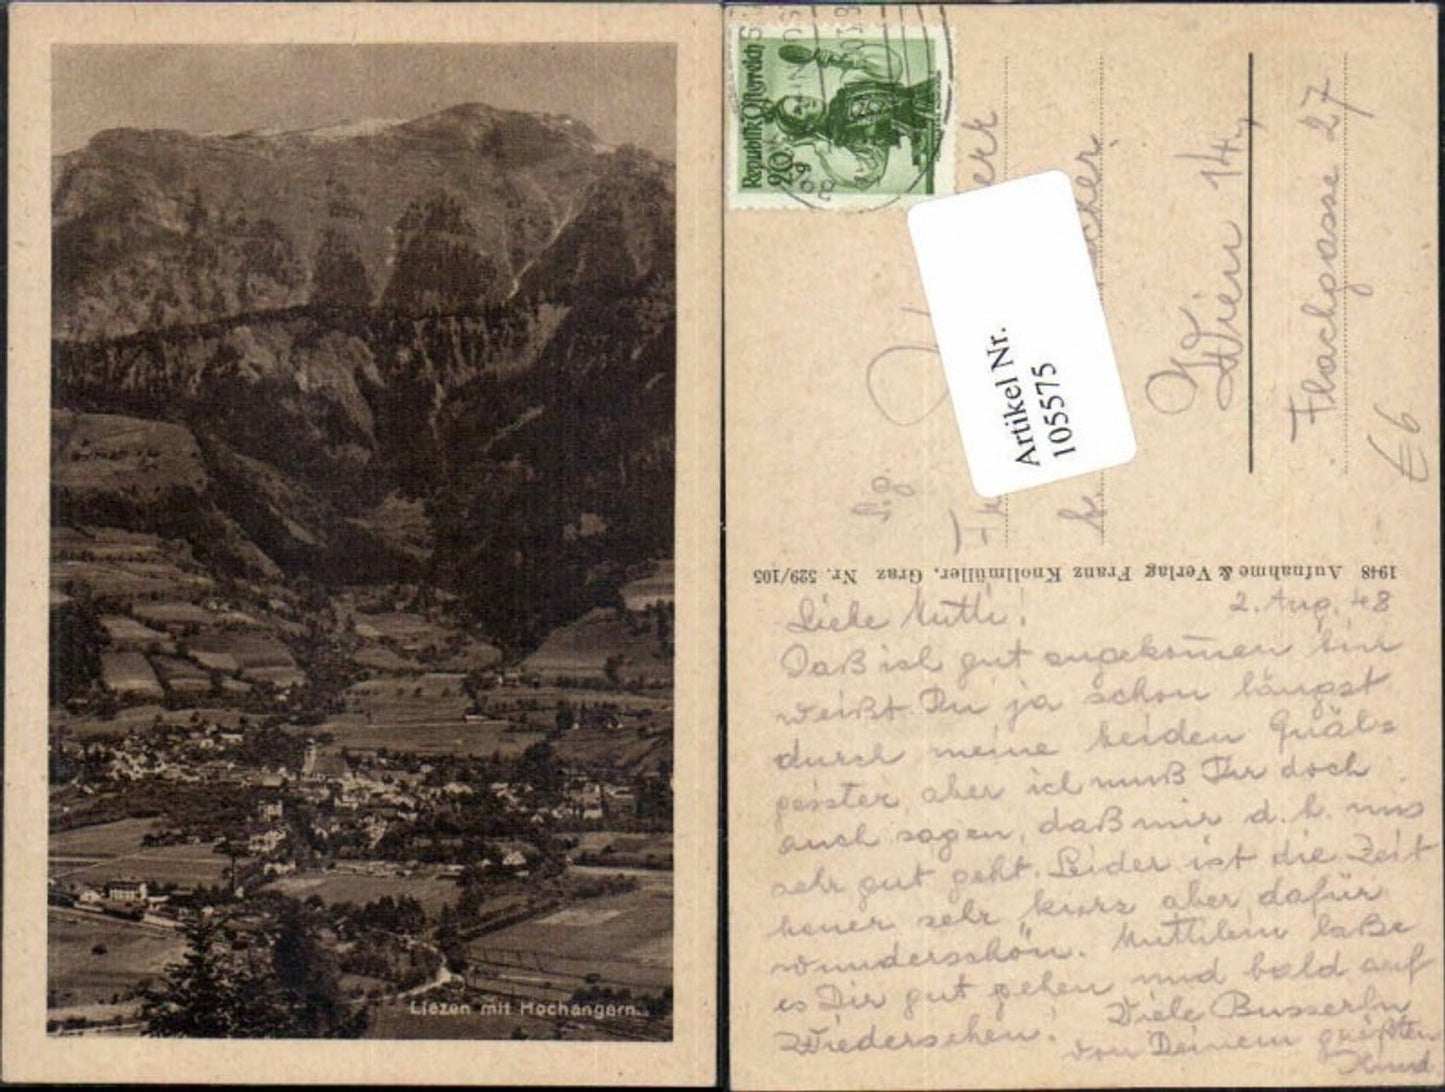 Liezen mit Hochangern.
Republik Österreich
20
Artikel Nr.
105575
Wien 14,
Flachgasse 27
€6
1948 Aufnahme & Verlag Franz Knollmüller, Graz Nr. 529/105
2. Aug. 48
Liebe Mutti!
Daß ich gut angekommen bin
weißt Du ja schon längst
durch meine beiden Quäl=
geister, aber ich muß Dir doch
auch sagen, daß mir d. h. uns
sehr gut geht. Leider ist die Zeit
heuer sehr kurz aber dafür
wunderschön. Muttilein laße
es Dir gut gehen und bald auf
Wiedersehen! Viele Busserln
von Deinem